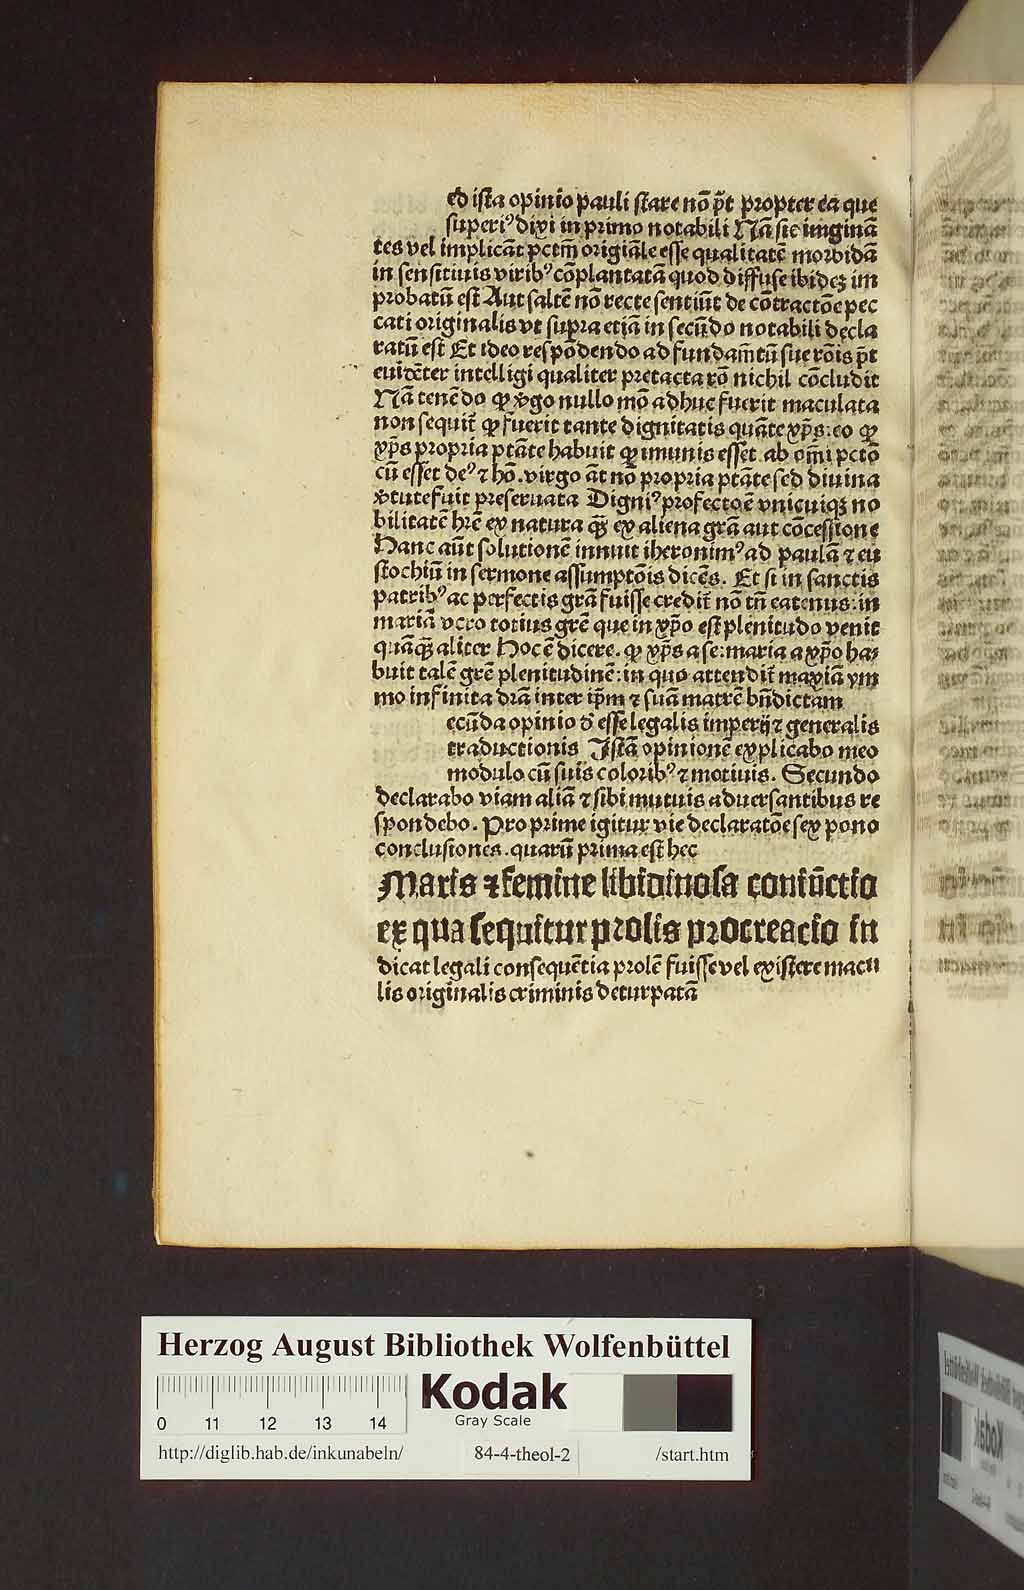 ed ista opinio pauli stare nō p̄t propter ea que
superiꝰ dixi in primo notabili Nā sic imginā
tes vel implicāt pctm̄ origiāle esse qualitatē morbidā
in sensitiuis viribꝰ cōplantatā quod diffuse ibideꝫ im
probatū est Aut saltē nō recte sentiūt de cōtractōe pec
cati originalis vt supra etiā in secūdo notabili decla
ratū est Et ideo respōdendo ad fundam̄tū sue rōis p̄t
euidēter intelligi qualiter pretacta rō nichil cōcludit
Nā tenēdo ꝙ v̄go nullo mō adhuc fuerit maculata
non sequit̄ ꝙ fuerit tante dignitatis quāte xp̄s: eo ꝙ
xp̄s propria ptāte habuit ꝙ imunis esset ab om̄i pctō
cū esset deꝰ ⁊ hō. virgo āt nō propria ptāte sed diuina
v̄tute fuit preseruata Digniꝰ profecto ē vnicuiqꝫ no
bilitatē hr̄e ex natura qꝫ̄ ex aliena grā aut cōcessione
Hanc aūt solutionē innuit iheronimꝰ ad paulā ⁊ eu
stochiū in sermone assumptōis dicēs. Et si in sanctis
patribꝰ ac perfectis grā fuisse credit̄ nō tn̄ eatenus: in
mariā vero totius gr̄e que in xp̄o est plenitudo venit
quāqꝫ̄ aliter Hoc ē dicere. ꝙ xp̄s a se: maria a xp̄o ha⸗
buit talē gr̄e plenitudinē: in quo attendit̄ maxiā ym
mo infinita dr̄a inter ip̄m ⁊ suā matrē bn̄dictam
ecūda opinio d̄ esse legalis imperij ⁊ generalis
traductionis Istā opinionē explicabo meo
modulo cū suis coloribꝰ ⁊ motiuis. Secundo
declarabo viam aliā ⁊ sibi mutuis aduersantibus re
spondebo. Pro prime igitur vie declaratōe sex pono
conclusiones. quarū prima est hec
Maris ⁊ femine libidinosa coniūctio
ex qua sequitur prolis procreacio in
dicat legali consequētia prolē fuisse vel existere macu
lis originalis criminis deturpatā
Herzog August Bibliothek Wolfenbüttel
0 11 12 13 14
Kodak
Gray Scale
http://diglib.hab.de/inkunabeln/ 84-4-theol-2 /start.htm